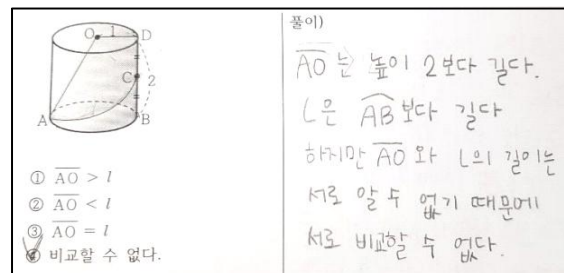 O 1 D
C 2
A B
① AO > l
② AO < l
③ AO = l
④ 비교할 수 없다.
풀이)
AO는 높이 2보다 길다.
l은 AB보다 길다
하지만 AO와 l의 길이는
서로 알 수 없기 때문에
서로 비교할 수 없다.